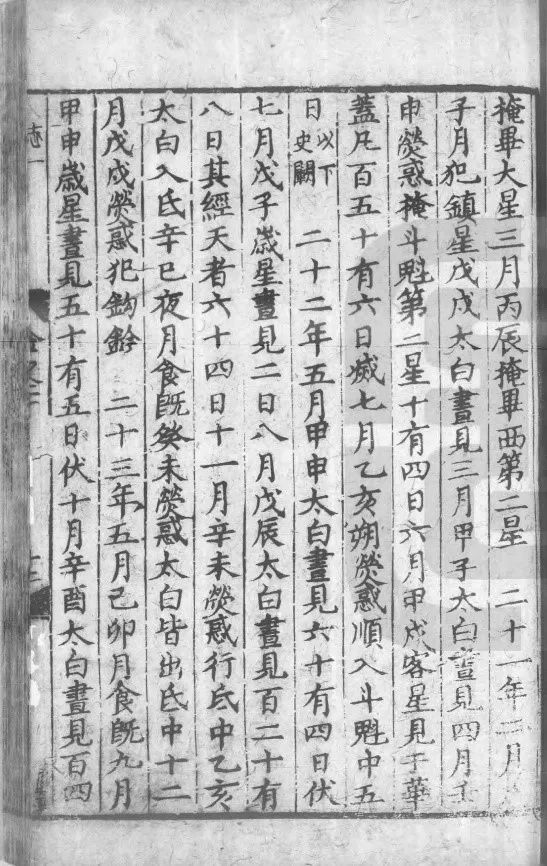 掩畢大星三月丙辰掩畢西第二星　二十一年二月
子月犯鎮星戊戌太白晝見三月甲子太白晝見四月壬
申熒惑掩斗魁第二星十有四日六月甲戌客星見于華
蓋凡百五十有六日滅七月乙亥朔熒惑順入斗魁中五
日以下史闕　二十二年五月甲申太白晝見六十有四日伏
七月戊子歲星晝見二日八月戊辰太白晝見百二十有
八日其經天者六十四日十一月辛未熒惑行氐中乙亥
太白入氐辛巳夜月食旣癸未熒惑太白皆出氐中十二
月戊戌熒惑犯鈎鈐　二十三年五月己卯月食旣九月
甲申歲星晝見五十有五日伏十月辛酉太白晝見百四
志一